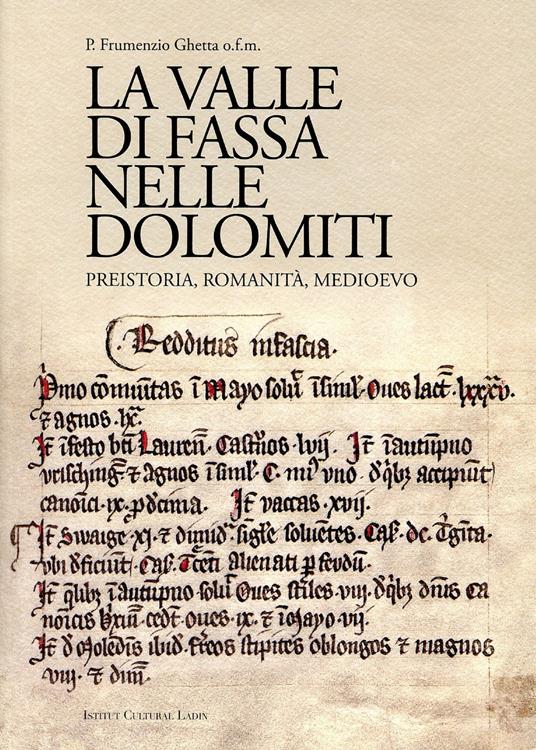 P. Frumenzio Ghetta o.f.m.
LA VALLE
DI FASSA
NELLE
DOLOMITI
PREISTORIA, ROMANITÀ, MEDIOEVO
Redditus infascia.
Pmo cōmunitas ī Mayo solūt īsimĺ oues lact̄ lxxxv.
⁊ agnos
It̄ īfesto bt̄i Laureñ. Castroños lvij. It̄ īautūpno
⁊ agnos īsimĺ C. vno dq̄bꝫ accipiūt
canoīci ix p dcima. It̄ vaccas xvij.
It̄ Swaige xj ⁊ dimid sigĺe soluētes Cas̄ dc
vbi dficiūt Cas̄ alienati p feudum.
It̄ īautūpno solūt Oues steriles viij dq̄bꝫ dn̄is Ca
noīcis cedt̄ oues ix ⁊ ī Mayo vij.
It̄ d Moledis ibid stipites oblongos ⁊ magnos
viij ⁊ dim̄.
ISTITUT CULTURAL LADIN